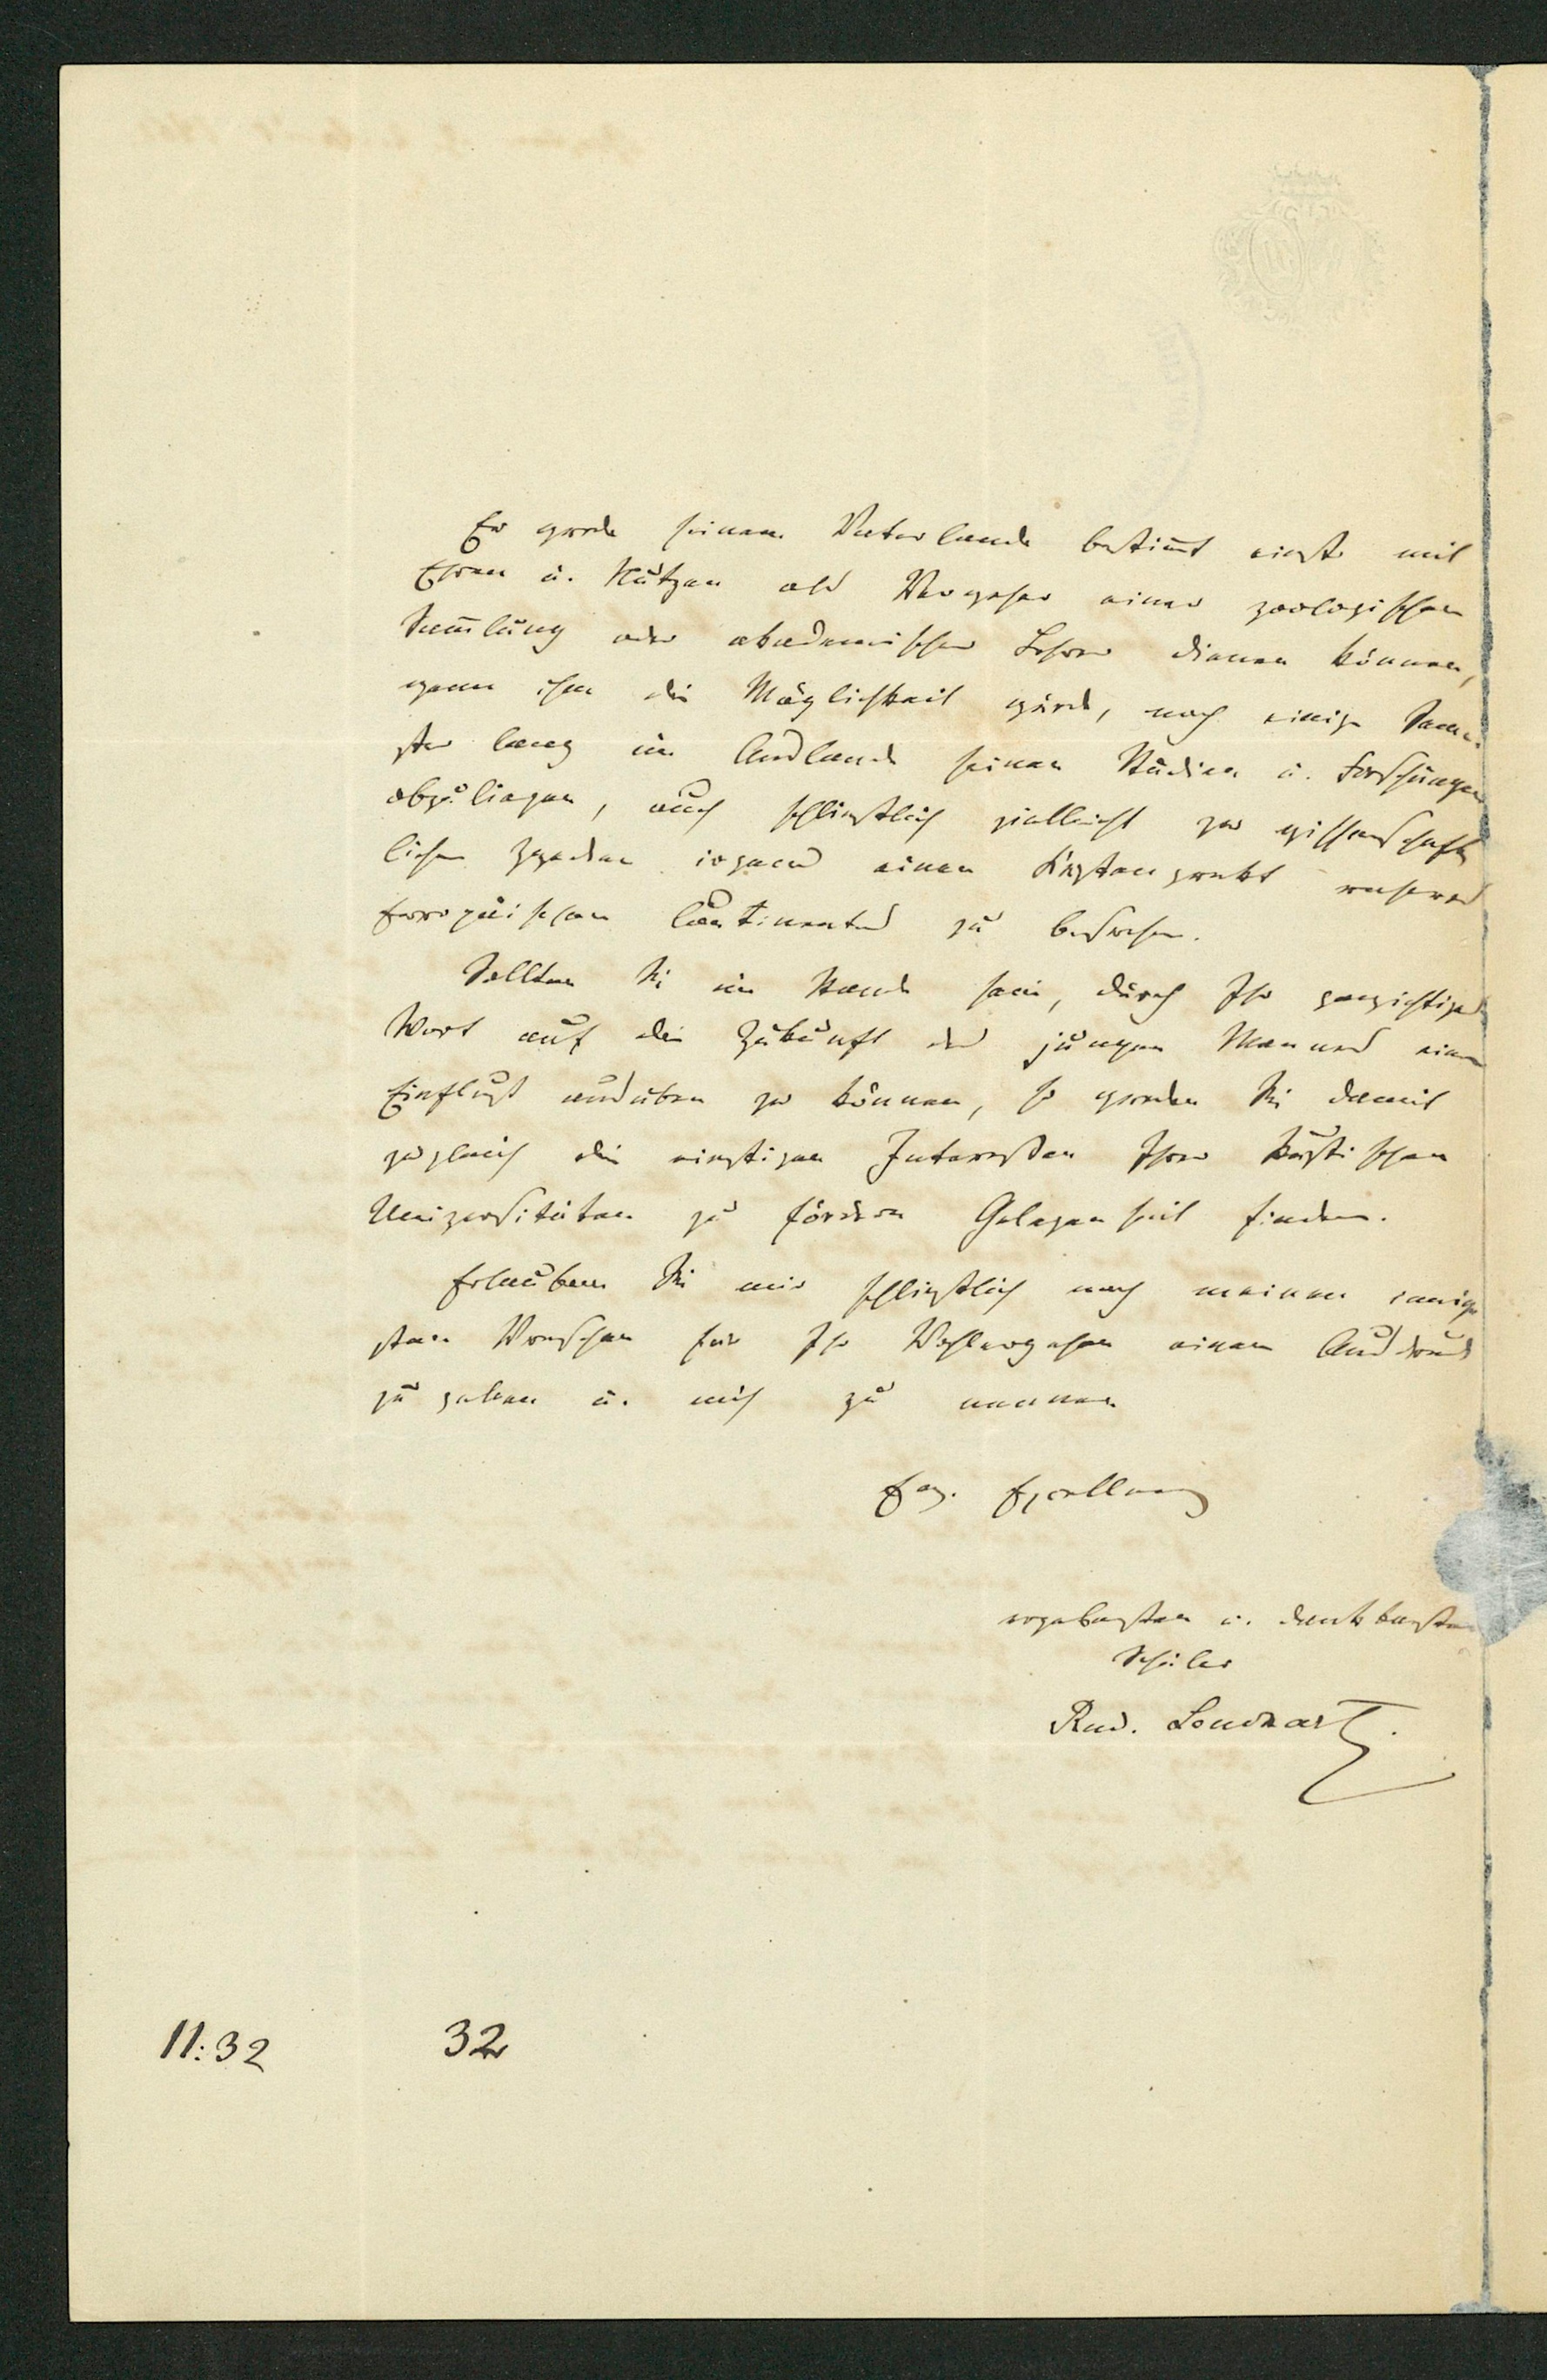 Er werde seinem Vaterlande bestim̅t einst mit
Ehren u. Nutzen als Vorsteher einer zoologischen
Sam̅lung oder akademischer Lehrer dienen können,
wenn ihm die Möglichkeit würde, noch einige Seme-
ster lang im Auslande seinen Studien u. Forschungen
obzuliegen, auch schliesslich vielleicht zu wissenschaft
lichen Zwecken irgend einen Küstenpunkt unseres
Europäischen Continentes zu besuchen.
Sollten Sie im Stande sein, durch Ihr gewichtiges
Wort auf die Zukunft des jungen Mannes einen
Einfluss ausüben zu können, so werden Sie damit
zugleich die einstigen Interessen Ihrer Russischen
Universitäten zu fördern Gelegenheit finden.
Erlauben Sie mir schliesslich noch meinen innig
sten Wünschen für Ihr Wohlergehen einen Ausdruck
zu geben u. mich zu nennen
Ew. Excellenz
ergebensten u. dankbarsten
Schüler
Rud. Leuckart.
11:32 32